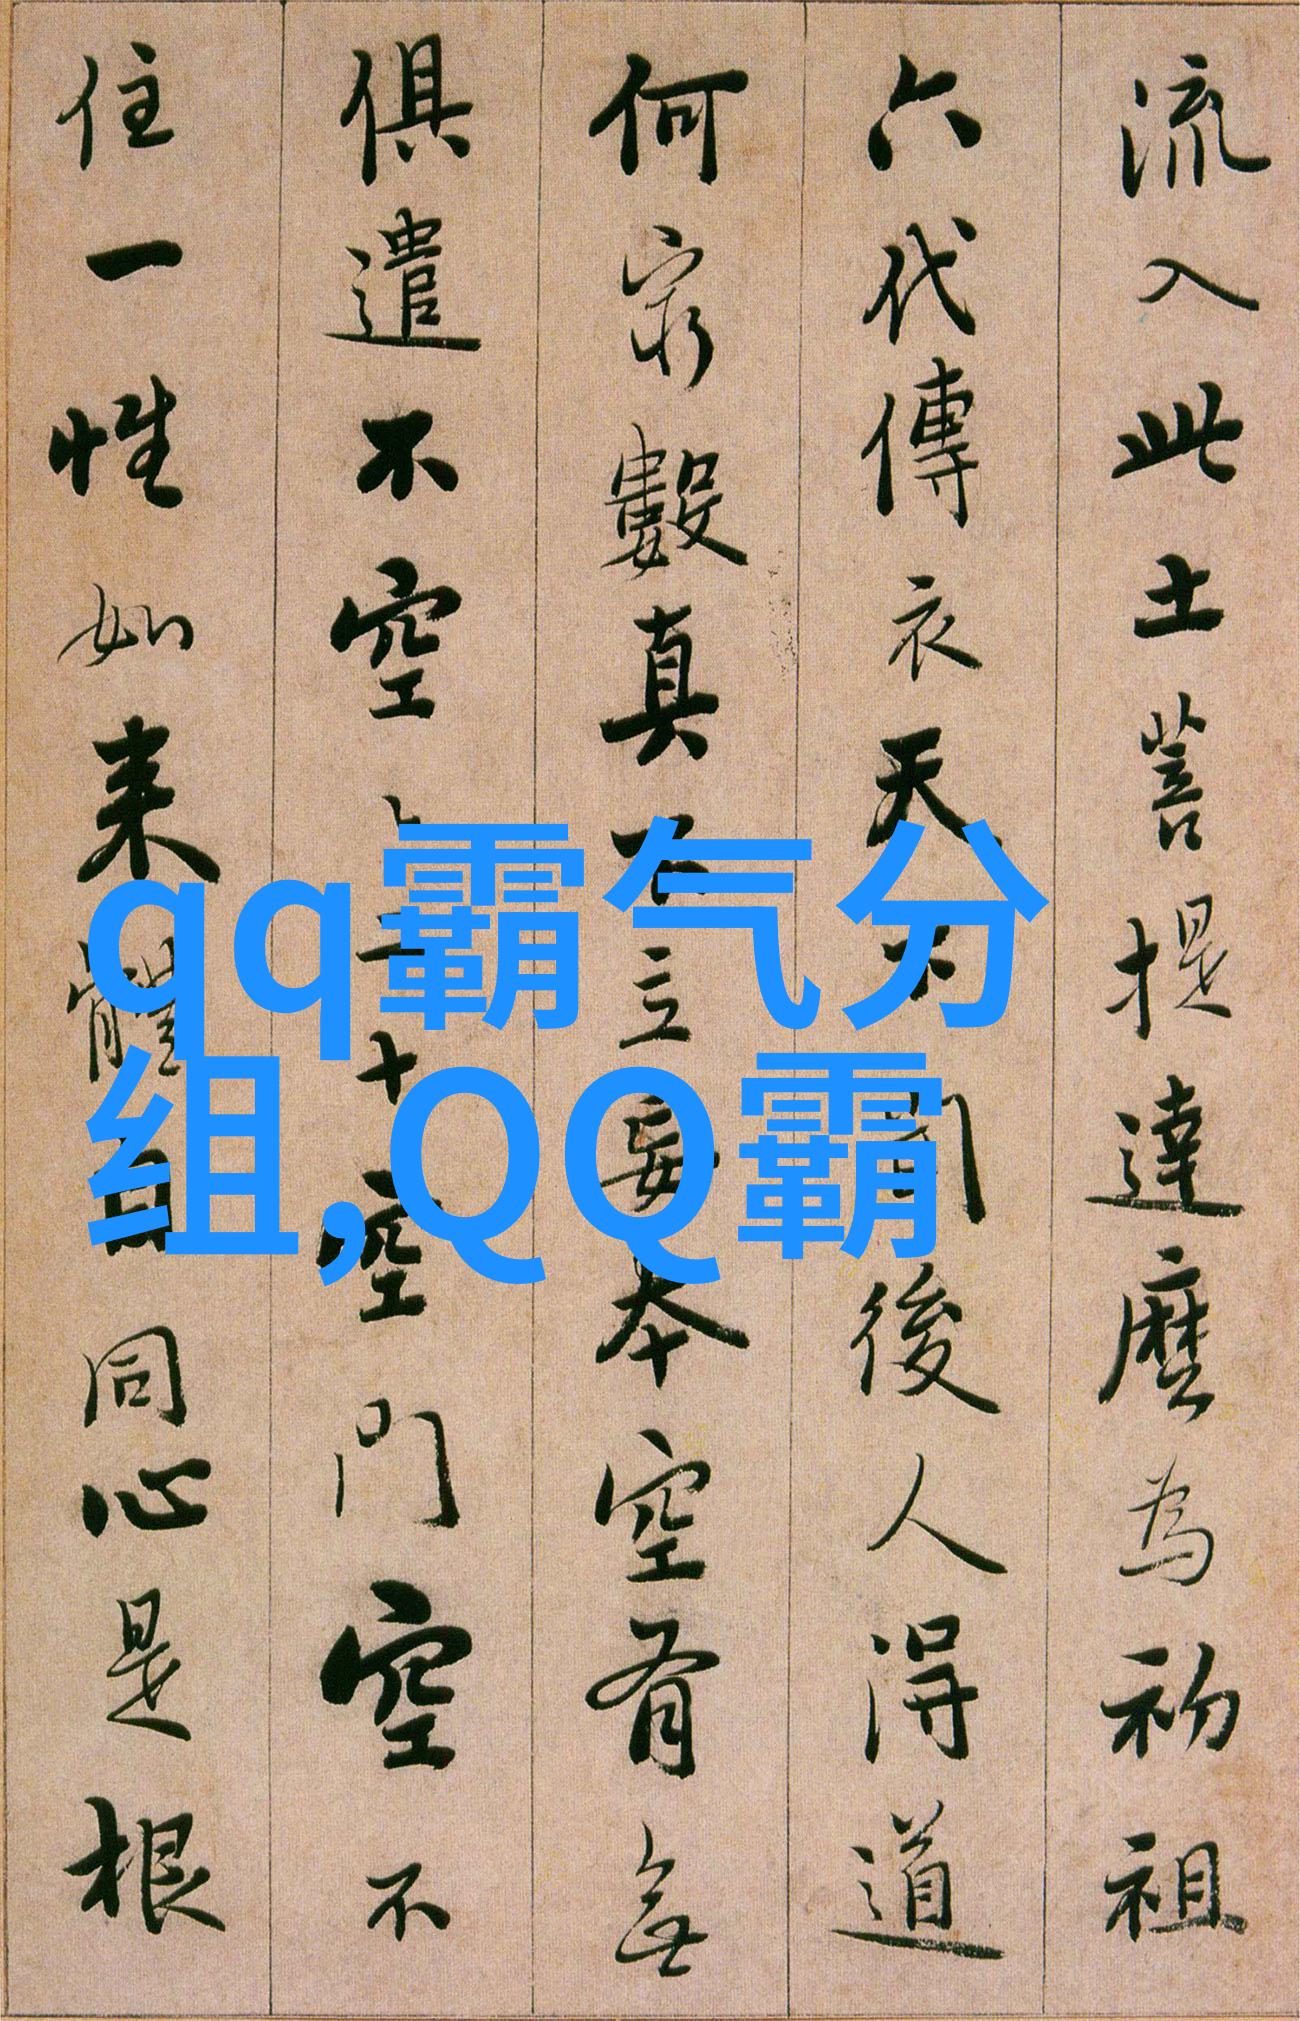 流入此土菩提達麼為初祖
六代傳衣天下聞後人得道
何窮數真不立妄本空有無
俱遣不空二十空門空不
住一性如来體自同心是根
qq霸气分
组,QQ霸